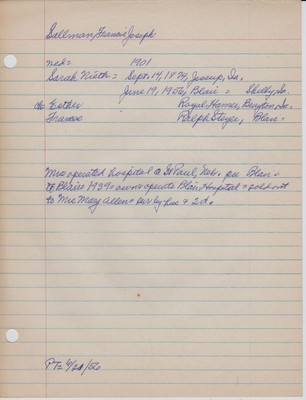 Sallman, Francis Joseph
ned= 1901
Sarah Nuth = Sept. 14, 1874, Jessup, Ia.
June 19, 1956, Blair = Shelby, Ia.
do Esther Royal Hamer, Dayton, Ia.
Frances Ralph Steyer, Blair.
Mrs operated hospital @ St Paul, Neb. pre Blair =
to Blair 1939 = own & operate Blair Hospital = sold out
to Mrs May Allen = sur by hus & 2 d.
PT= 6/21/56